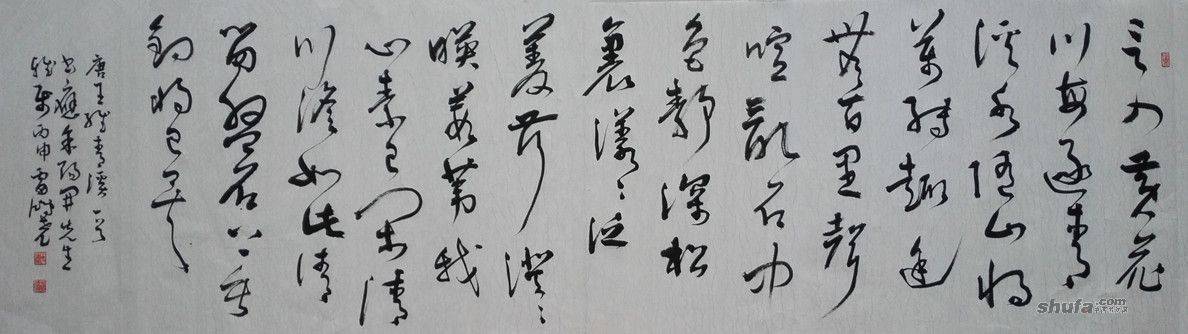 言入黄花
川每逐青
溪水随山将
萬轉趣途
無百里聲
喧亂石中
色靜深松
裏漾〻泛
菱荇澄〻
映葭葦我
心素已闲清
川澹如此請
留盤石上垂
釣将已矣
唐王维青溪一首
书應 先生
雅属丙申雷
shufa.com